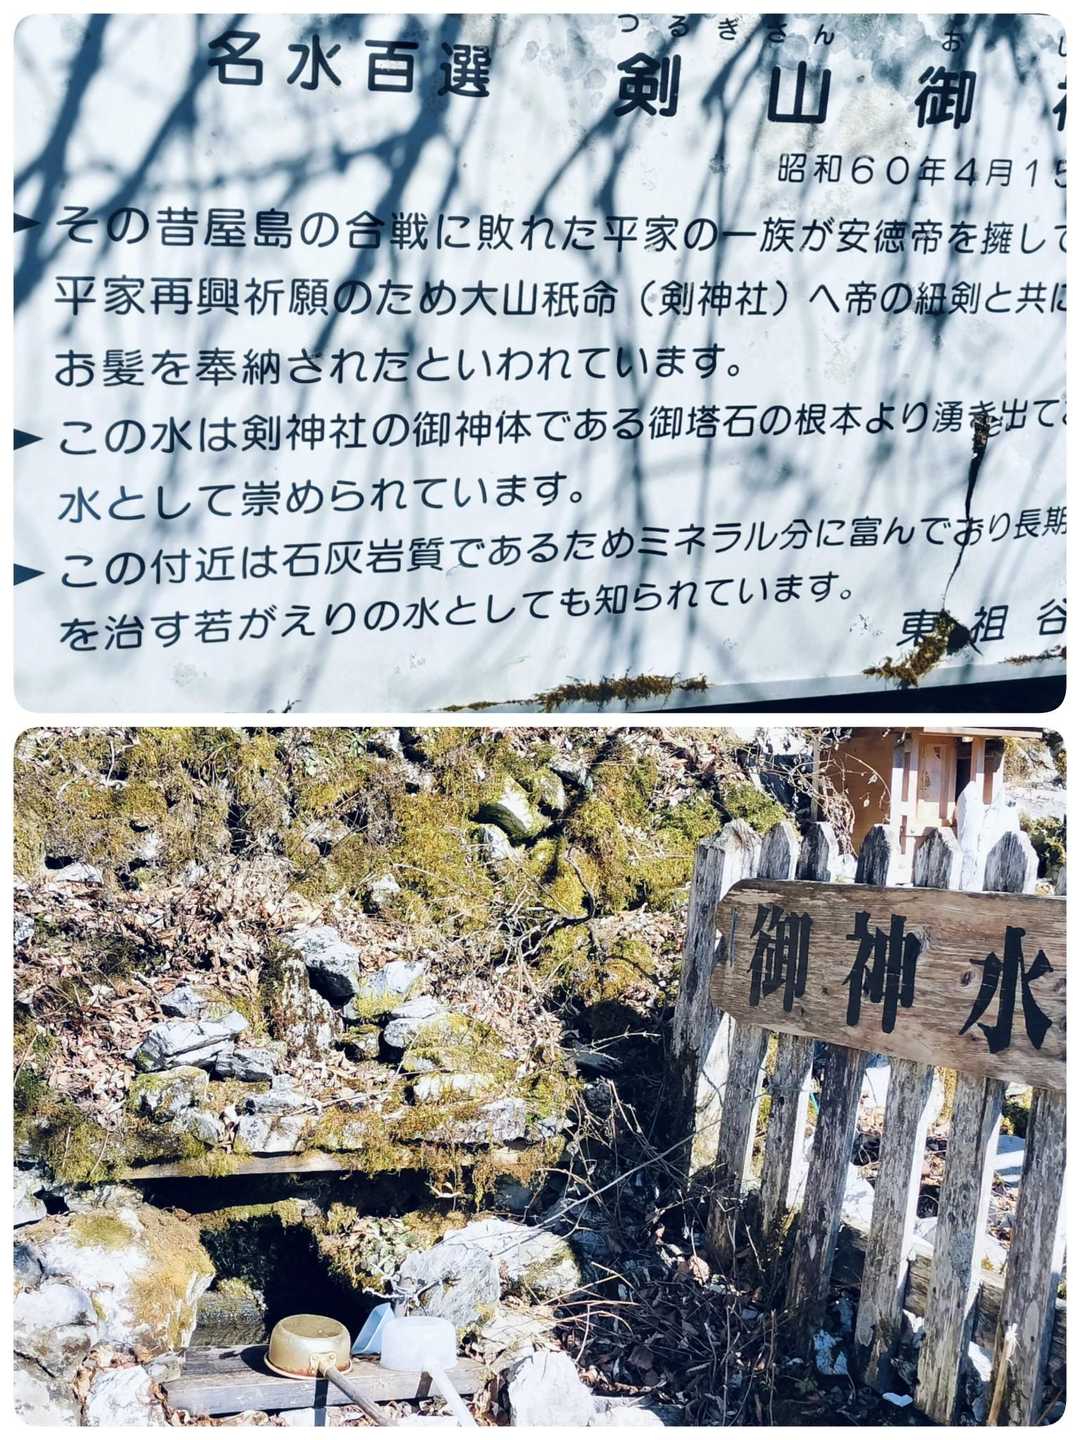 つるぎさん お
名水百選 剣山御
昭和60年4月15
その昔屋島の合戦に敗れた平家の一族が安徳帝を擁して
平家再興祈願のため大山祇命（剣神社）へ帝の紐剣と共に
お髪を奉納されたといわれています。
この水は剣神社の御神体である御塔石の根本より湧き出て
水として崇められています。
この付近は石灰岩質であるためミネラル分に富んでおり長期
を治す若がえりの水としても知られています。
東祖谷
御神水